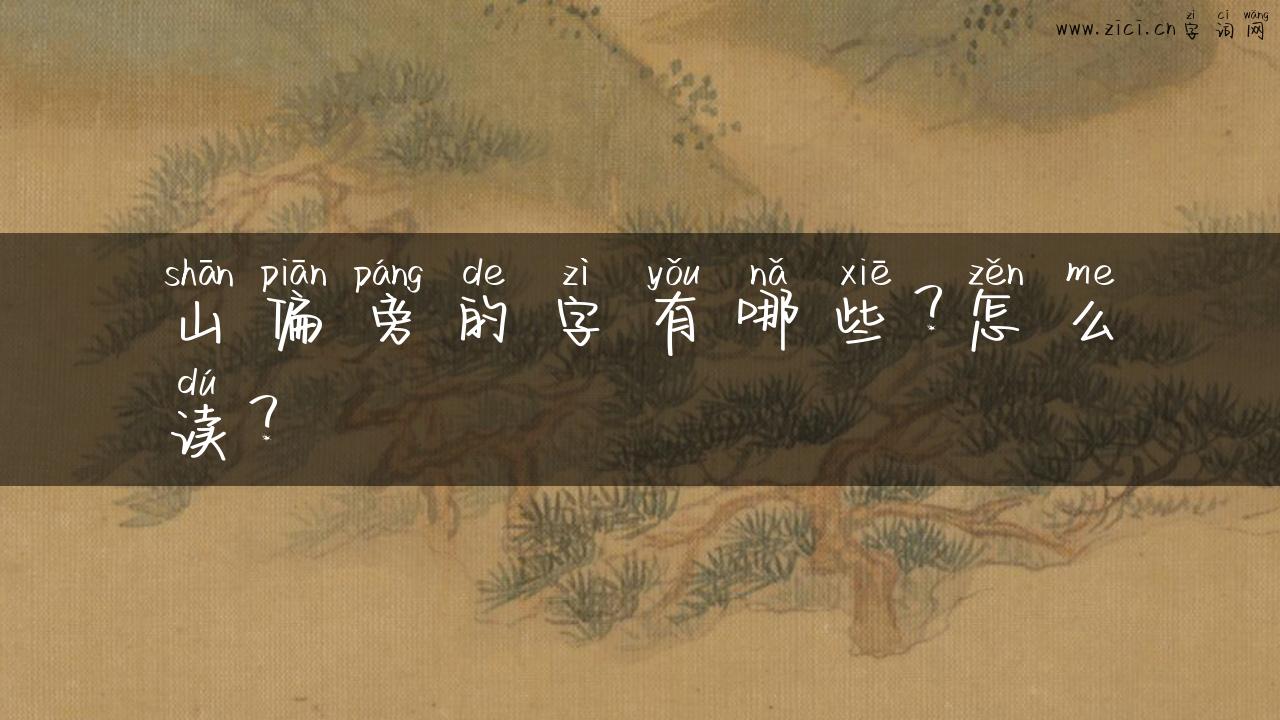 zì cí wǎng
www.zici.cn 字词网
shān piān páng de zì yǒu nǎ xiē zěn me
山偏旁的字有哪些?怎么
dú
读?